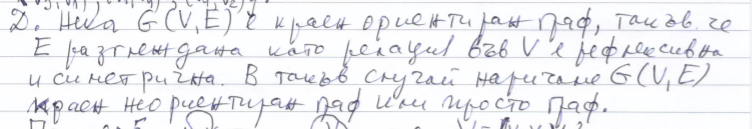 D. Нека G(V,E) е краен ориентиран граф, такъв че
E разглеждана като релация във V е рефлексивна
и симетрична. В такъв случай наричаме G(V,E)
краен неориентиран граф или просто граф.